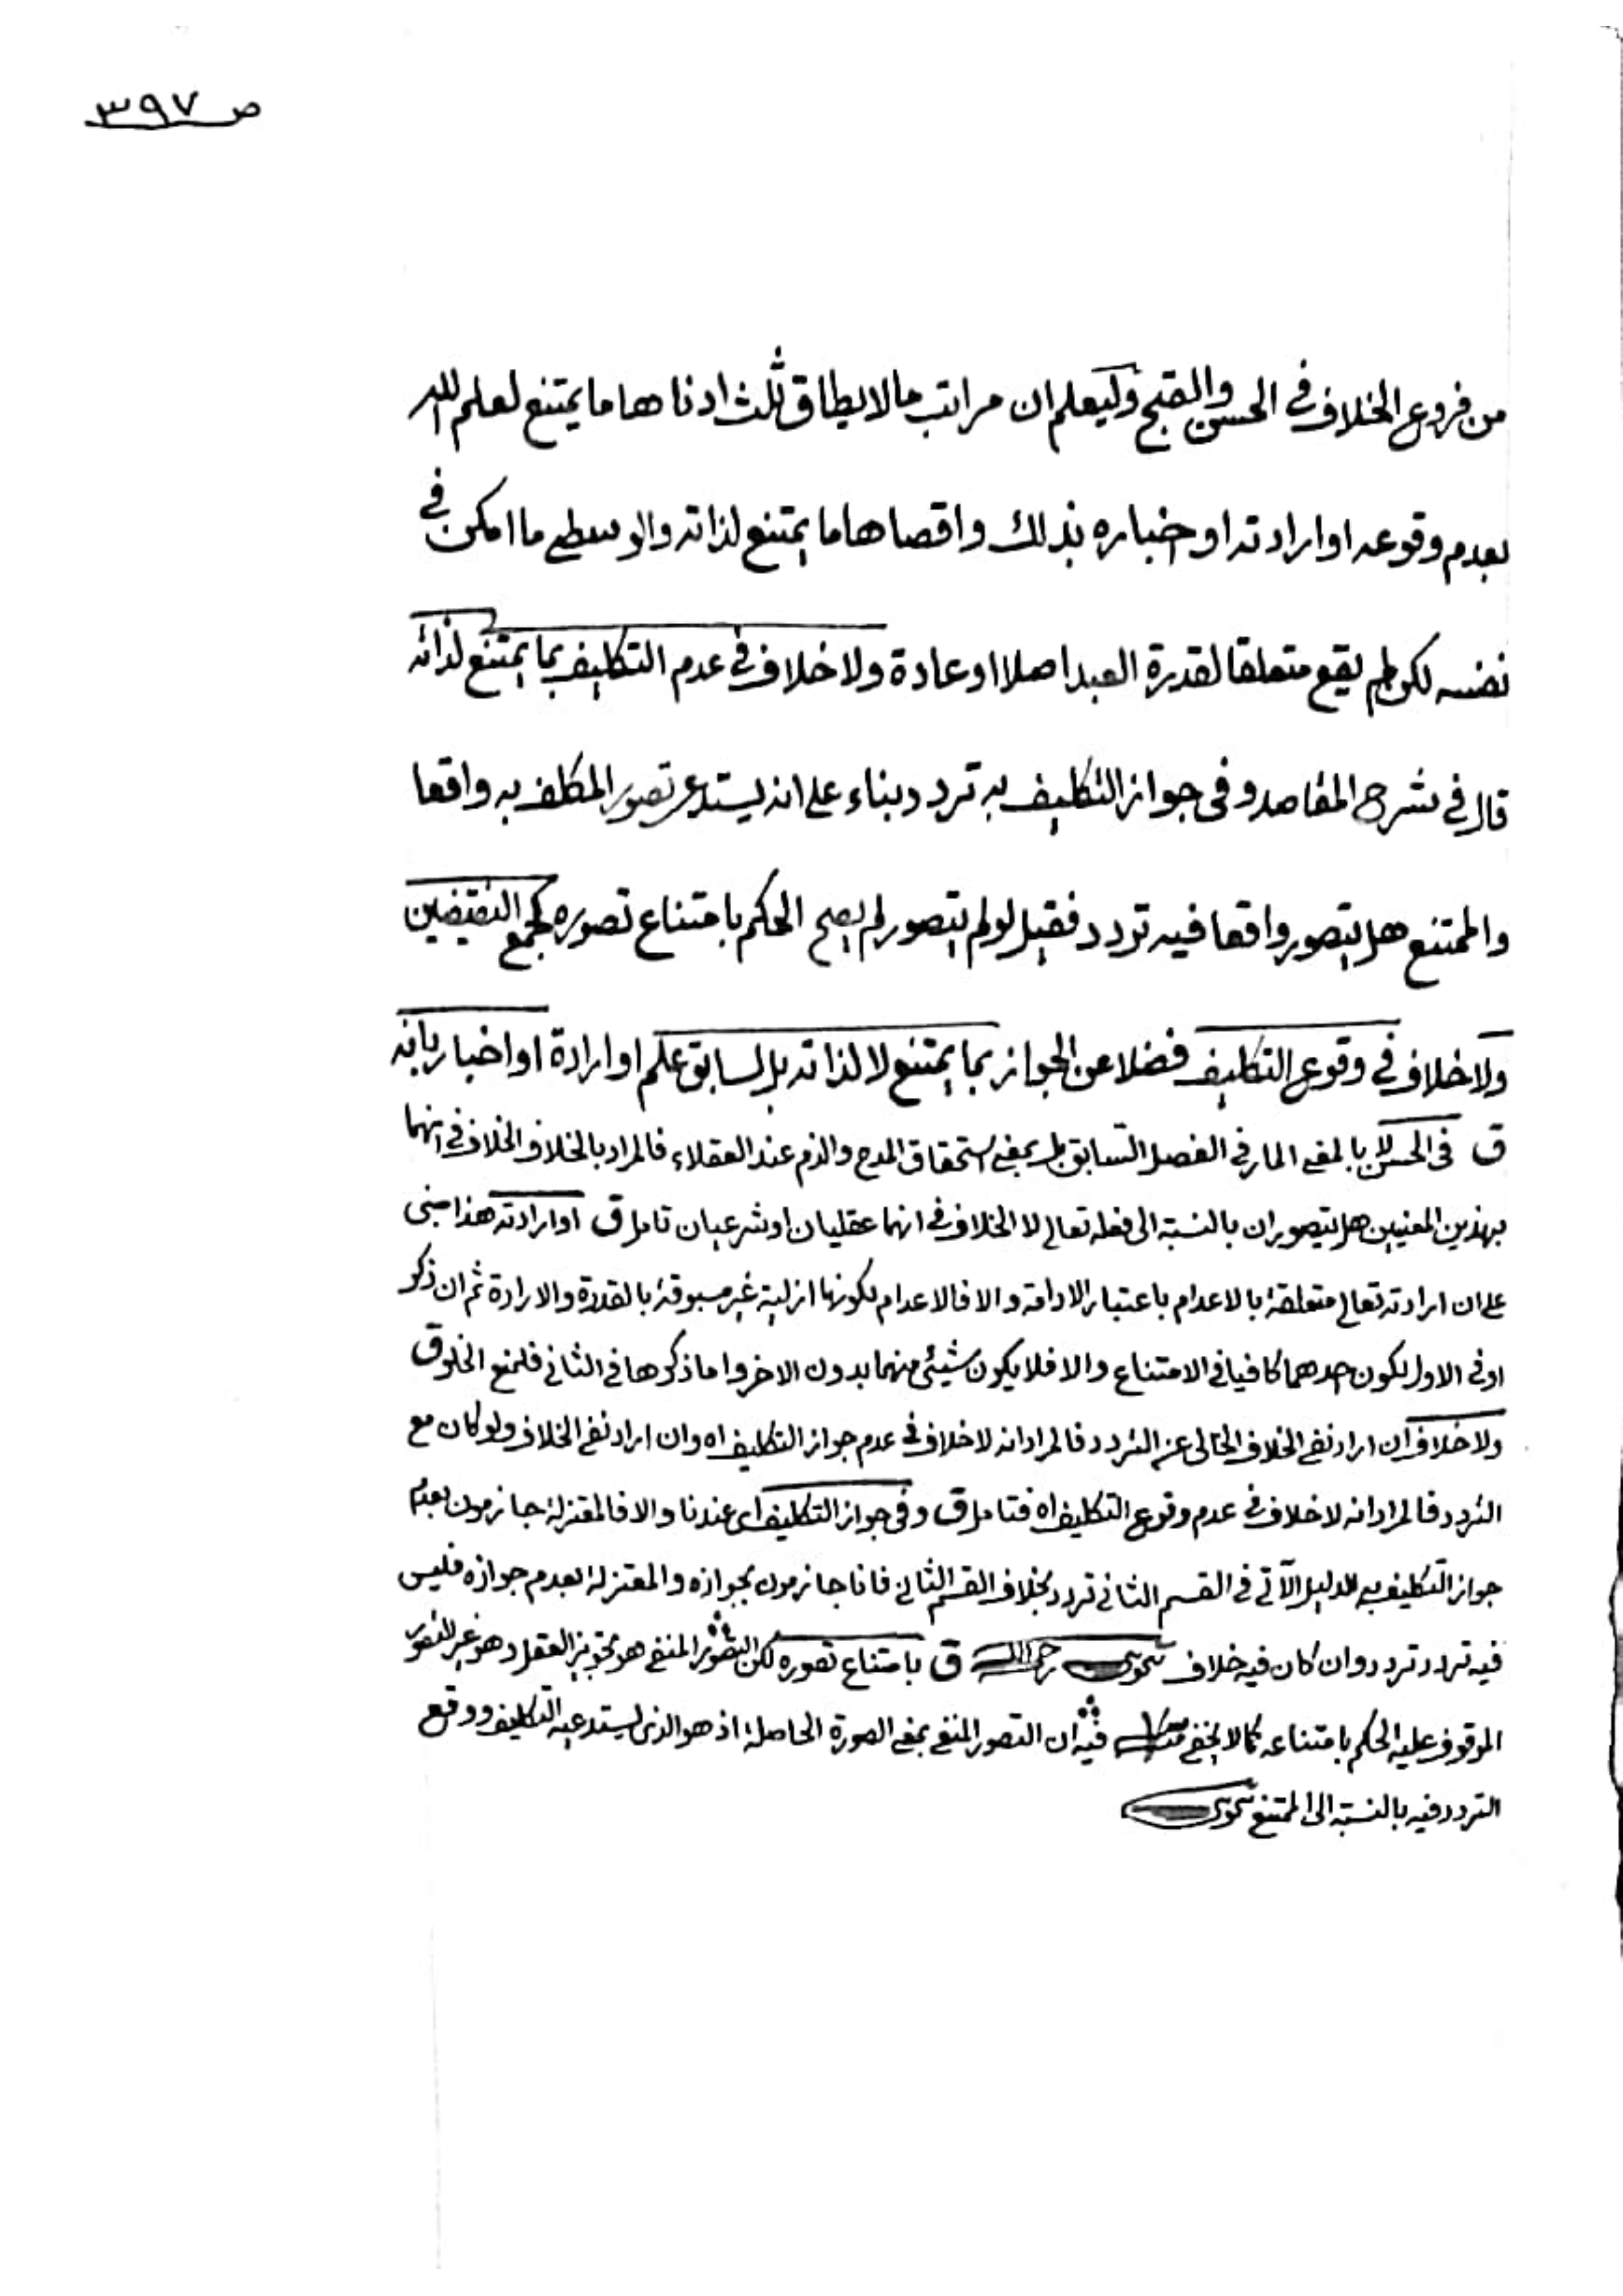 ص ٣٩٧
من فروع الخلاف في الحسن والقبح وليعلم ان مراتب ما لا يطاق ثلث ادناها ما يمتنع لعلم الله
بعدم وقوعه او ارادته او اخباره بذلك واقصاها ما يمتنع لذاته والوسطى ما امكن في
نفسه لكن لم يقع متعلقا لقدرة العبد اصلا او عادة ولا خلاف في عدم التكليف بما يمتنع لذاته
قال في شرح المقاصد وفي جواز التكليف به تردد بناء على انه يستدعي تصور المكلف به واقعا
والممتنع هل يتصور واقعا فيه تردد فقيل لو لم يتصور لم يصح الحكم بامتناع تصوره كجمع النقيضين
ولا خلاف في وقوع التكليف فضلا عن الجواز بما يمتنع لا لذاته بل لسابق علم او ارادة او اخبار بانه
ق في الحسن لا بالمعنى المار في الفصل السابق بل بمعنى استحقاق المدح والذم عند العقلاء فالمراد بالخلاف الخلاف في انهما
بهذين المعنيين هل يتصوران بالنسبة الى فعله تعالى لا الخلاف في انهما عقليان او شرعيان تامل ق او ارادته هذا مبنى
على ان ارادته تعالى متعلقة بالاعدام باعتبار الادامة والا فالاعدام لكونها ازلية غير مسبوقة بالقدرة والارادة ثم ان ذكر
او في الاول لكون احدهما كافيا في الامتناع والا فلا يكون شيئ منهما بدون الاخر واما ذكرها في الثاني فلمنع الخلو ق
ولا خلاف ان اراد نفي الخلاف الخالى عن التردد فالمراد انه لا خلاف في عدم جواز التكليف اه وان اراد نفي الخلاف ولو كان مع
التردد فالمراد انه لا خلاف في عدم وقوع التكليف اه فتامل ق وفي جواز التكليف اى عندنا والا فالمعتزلة جازمون بعدم
جواز التكليف به للدليل الآتى في القسم الثاني تردد بخلاف القسم الثانى فانا جازمون بجوازه والمعتزلة بعدم جوازه فليس
فيه تردد تردد وان كان فيه خلاف رحمه الله ق بامتناع تصوره لكن التصور المنفي هو تجويز العقل وهو غير التصور
الموقوف عليه الحكم بامتناعه كما لا يخفى فيه ان التصور المنفي بمعنى الصورة الحاصلة اذ هو الذى يستدعيه التكليف ووقع
التردد فيه بالنسبة الى الممتنع